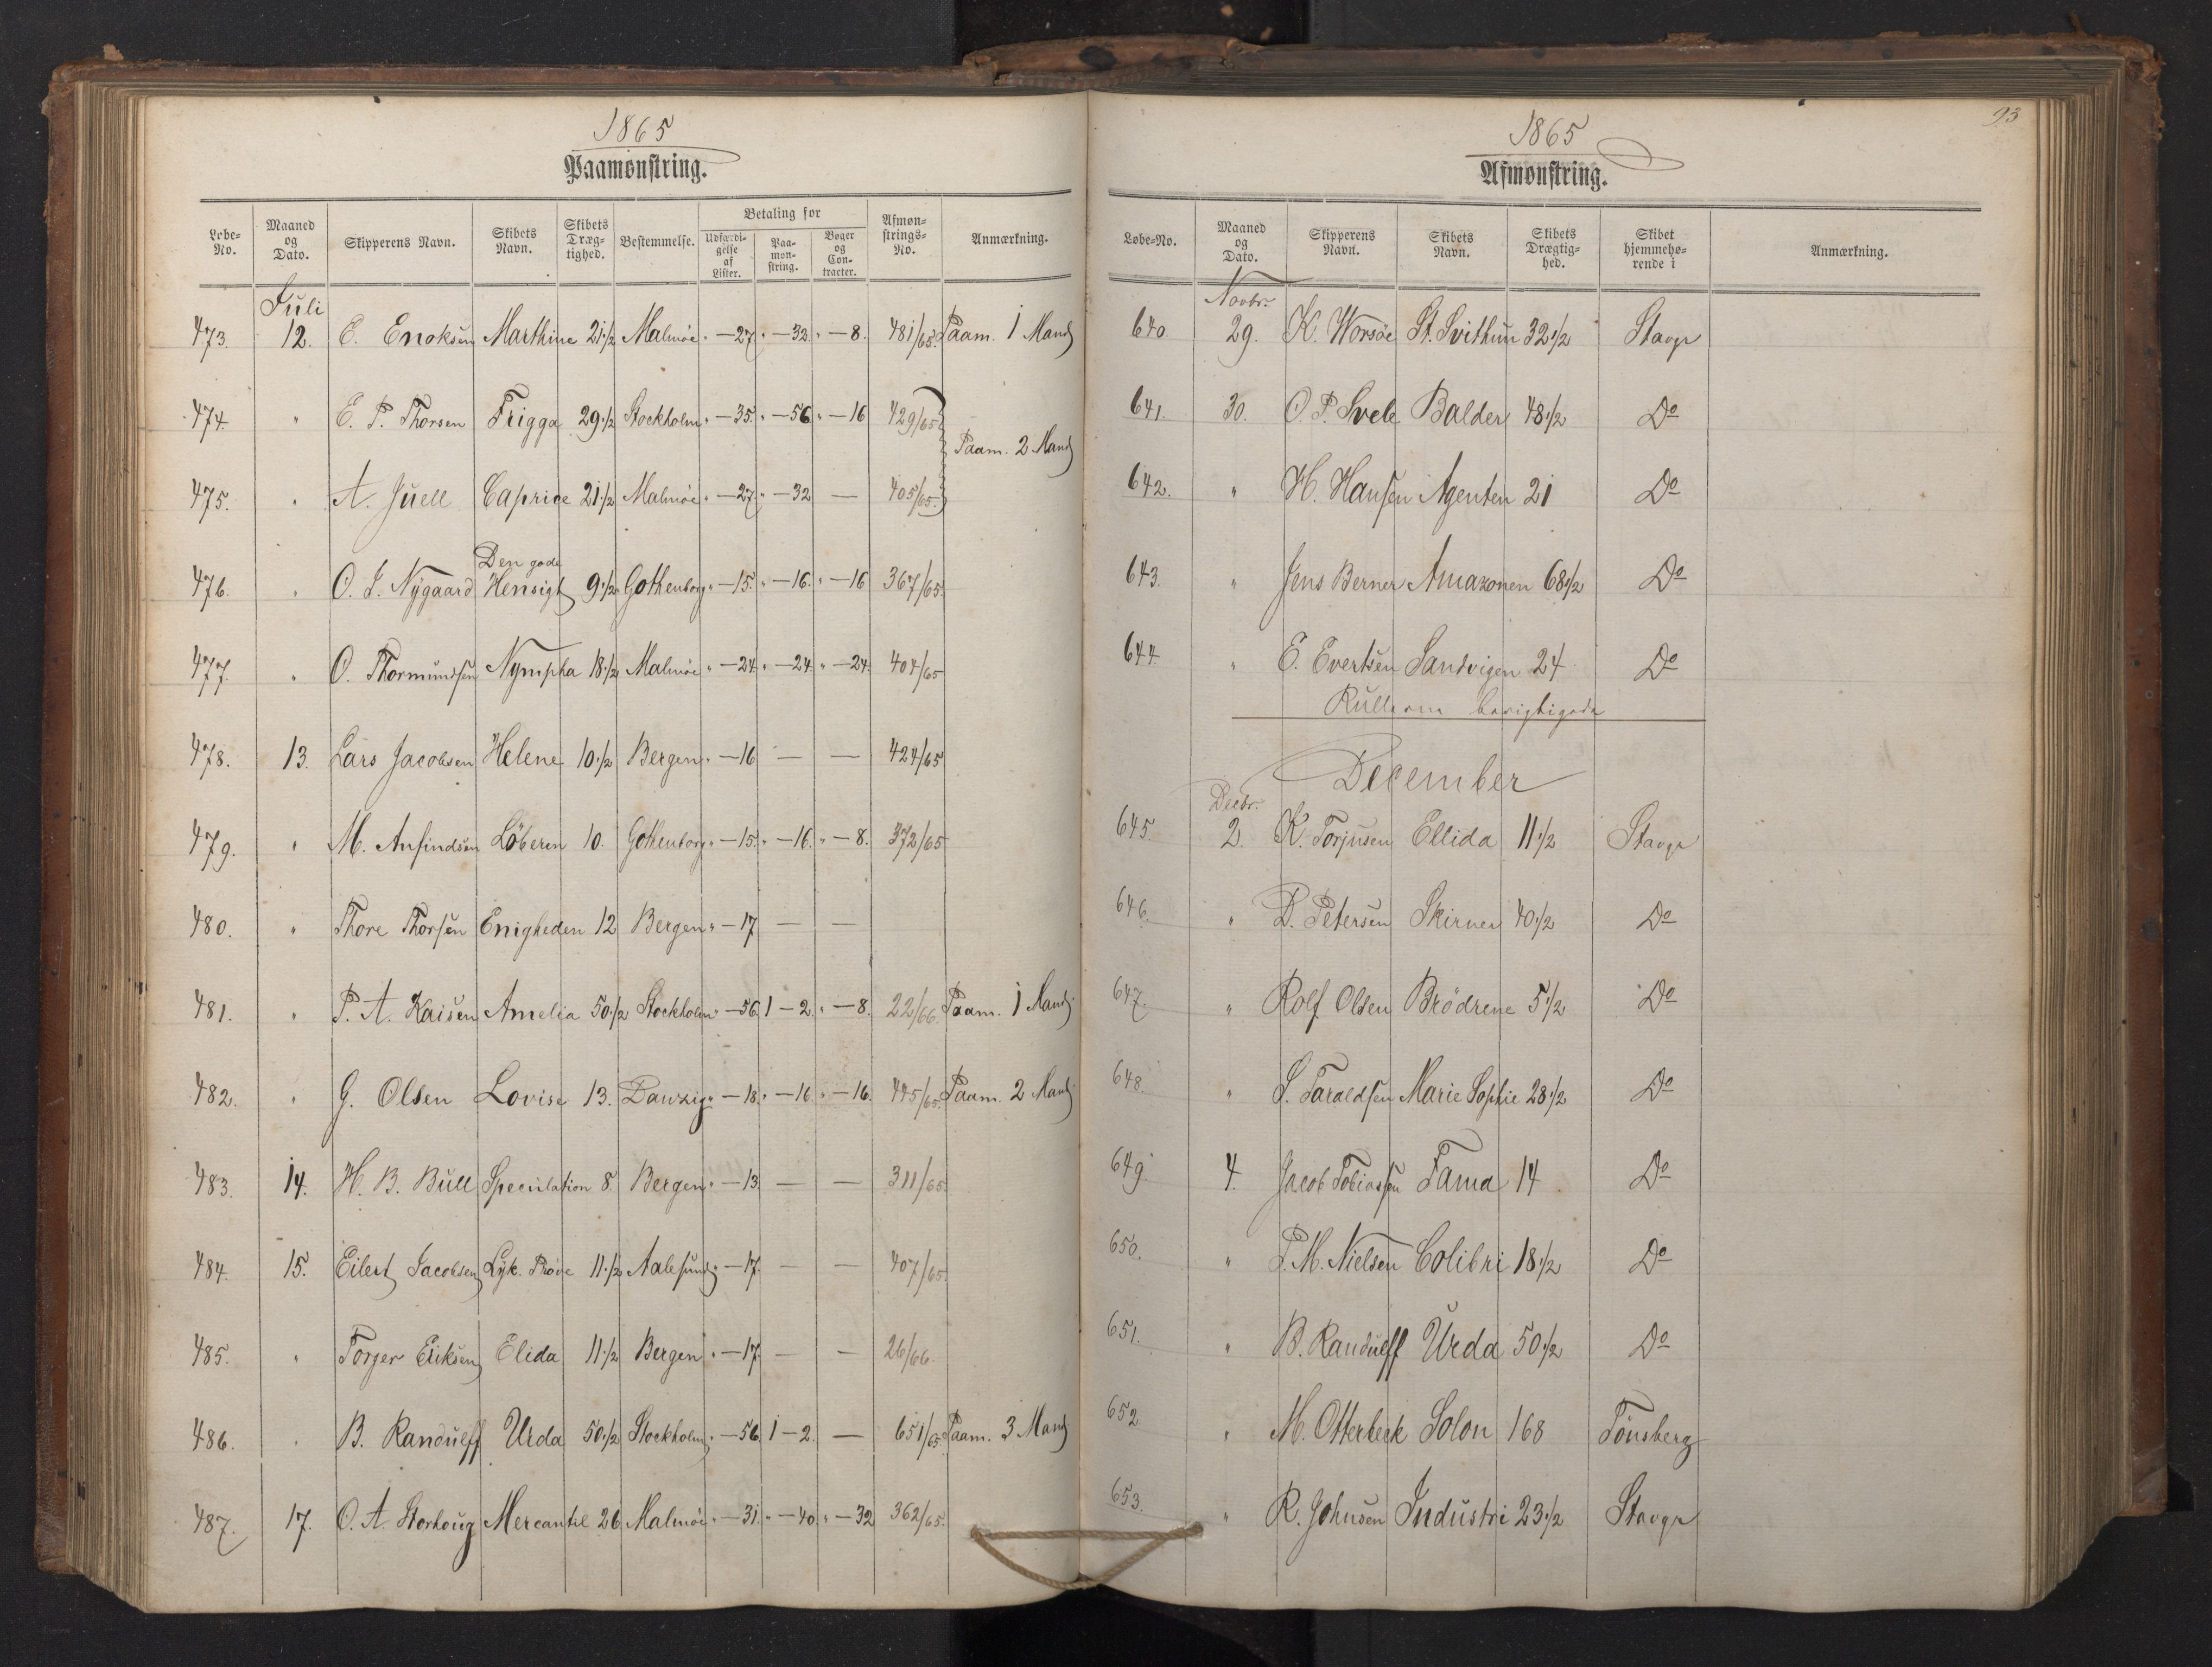 1865
Paamønstring.
Løbe-No. Maaned og Dato. Skipperens Navn. Skibets Navn. Skibets Dræg-tighed. Bestemmelse. Betaling for Udfærdi-gelse af Lister. Paa-møn-string. Bøger og Con-tracter. Afmøn-strings-No. Anmærkning.
Juli
473. 12. E. Enoksen Marthine 21 1/2 Malmöe " — 27 " — 32 " — 8. 481/65. Paam. 1 Mand
474. " E. P. Thorsen Frigga 29 1/2 Stockholm " — 35. " — 56 " — 16 429/65
Paam. 2 Mand
475. " A. Juell Caprice 21 1/2 Malmöe " — 27 " — 32 — 405/65.
Den gode
476. " O. J. Nygaard Hensigt 9 1/2 Gothenborg " — 15. " — 16. " — 16 367/65.
477. " O. Thormundsen Nympha 18 1/2 Malmöe " — 24 " — 24. " — 24. 404/65
478. 13. Lars Jacobsen Helene 10 1/2 Bergen " — 16 — — 424/65
479. " M. Anfindsen Löberen 10. Gothenborg " — 15. " — 16. " — 8. 372/65
480. " Thore Thorsen Enigheden 12 Bergen " — 17 — —
481. " P. A. Kaisen Amelia 50 1/2 Stockholm " — 56 1 — 2. " — 8. 22/66. Paam. 1 Mand
482. " G. Olsen Lovise 13. Danzig " — 18. " — 16. " — 16. 445/65. Paam. 2 Mand
483. 14. H. B. Bull Speculation 8. Bergen " — 13. — — 311/65.
484. 15. Eilert Jacobsen Lyk. Pröve 11 1/2 Aalesund " — 17. — — 407/65.
485. " Torger Eriksen Elida 11 1/2 Bergen " — 17. — — 26/66.
486. " B. Randulff Urda 50 1/2 Stockholm " — 56. 1 — 2. — 651/65. Paam. 3 Mand
487. 17. O. A. Storhoug Mercantil 26 Malmöe " — 31. " — 40. " — 32 362/65.
93
1865
Afmønstring.
Løbe-No. Maaned og Dato. Skipperens Navn. Skibets Navn. Skibets Drægtig-hed. Skibet hjemmehø-rende i Anmærkning.
Novbr.
640. 29. K. Worsöe St. Svithun 32 1/2 Stavgr
641. 30. O. P. Svele Balder 48 1/2 Do
642. " H. Hansen Agenten 21 Do
643. " Jens Berner Amazonen 68 1/2 Do
644. " E. Evertsen Sandvigen 24 Do
Rullerne berigtigede
December
Decbr.
645. 2. K. Torjusen Ellida 11 1/2 Stavgr
646. " D. Petersen Skirner 40 1/2 Do
647. " Rolf Olsen Brödrene 5 1/2 Do
648. " S. Taraldsen Marie Sophie 28 1/2 Do
649. 4. Jacob Tobiassen Fama 14 Do
650. " P. M. Nielsen Colibri 18 1/2 Do
651. " B. Randulff Urda 50 1/2 Do
652. " M. Otterbeck Solon 168 Tönsberg
653. " R. Johnsen Industri 23 1/2 Stavgr